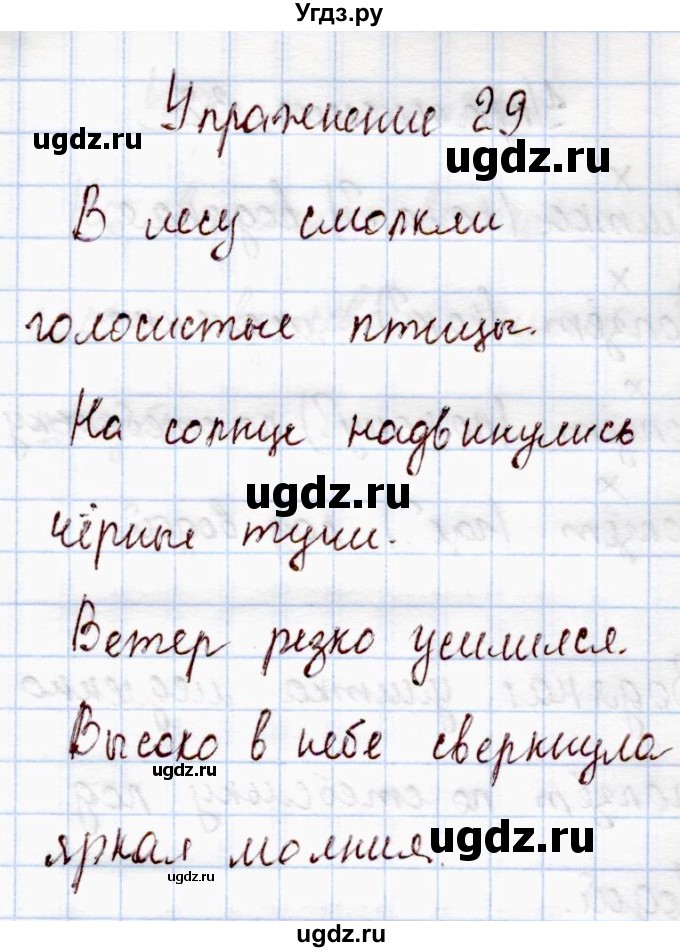 Угдз.ру
Упражнение 29
ugdz.ru ugdz.ru
В лесу смолкли
голосистые птицы.
На солнце надвинулись
ugdz.ru
чёрные тучи.
Ветер резко усилился.
Высоко в небе сверкнула
ugdz.ru
яркая молния.
ugdz.ru
ugdz.ru
ugdz.ru